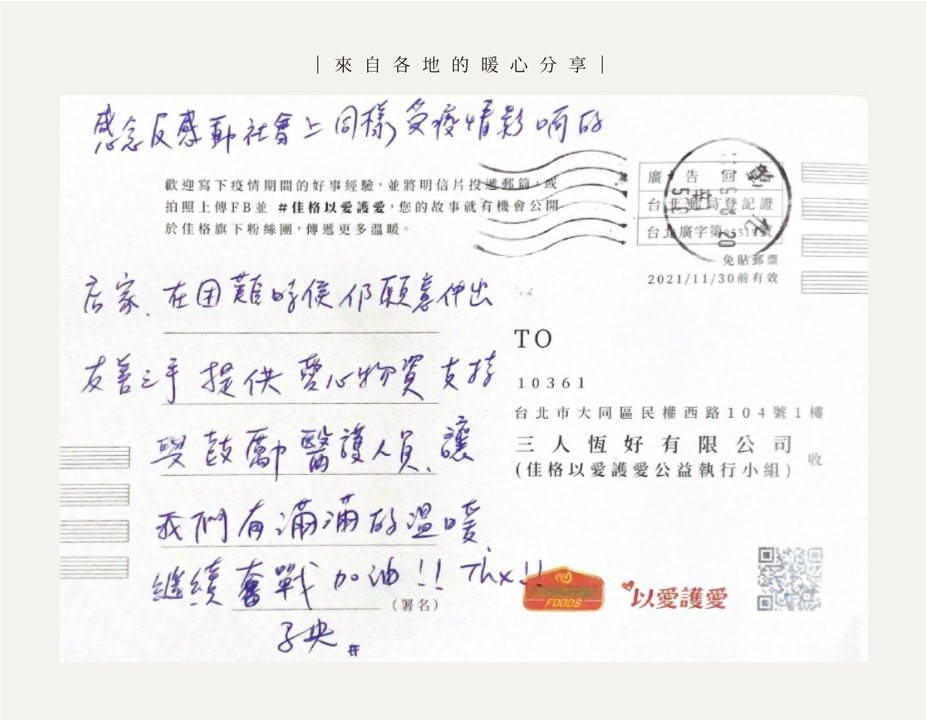 |來自各地的暖心分享|
感念反感動社會上同樣受疫情影响的
歡迎寫下疫情期間的好事經驗，並將明信片投遞郵筒，或
拍照上傳FB並 #佳格以愛護愛，您的故事就有機會公開
於佳格旗下粉絲團，傳遞更多溫暖。
廣告回
台北郵局登記證
台北廣字第
免貼郵票
2021/11/30前有效
店家、在困難時侯仍願意伸出
友善之手 提供愛心物資支持
與鼓勵醫護人員、讓
我們有滿滿的溫暖
繼續奮戰加油!! Thx!!
(署名)
子央 #
TO
10361
台北市大同區民權西路104號1樓
三人恆好有限公司
(佳格以愛護愛公益執行小組) 收
FOODS
以愛護愛